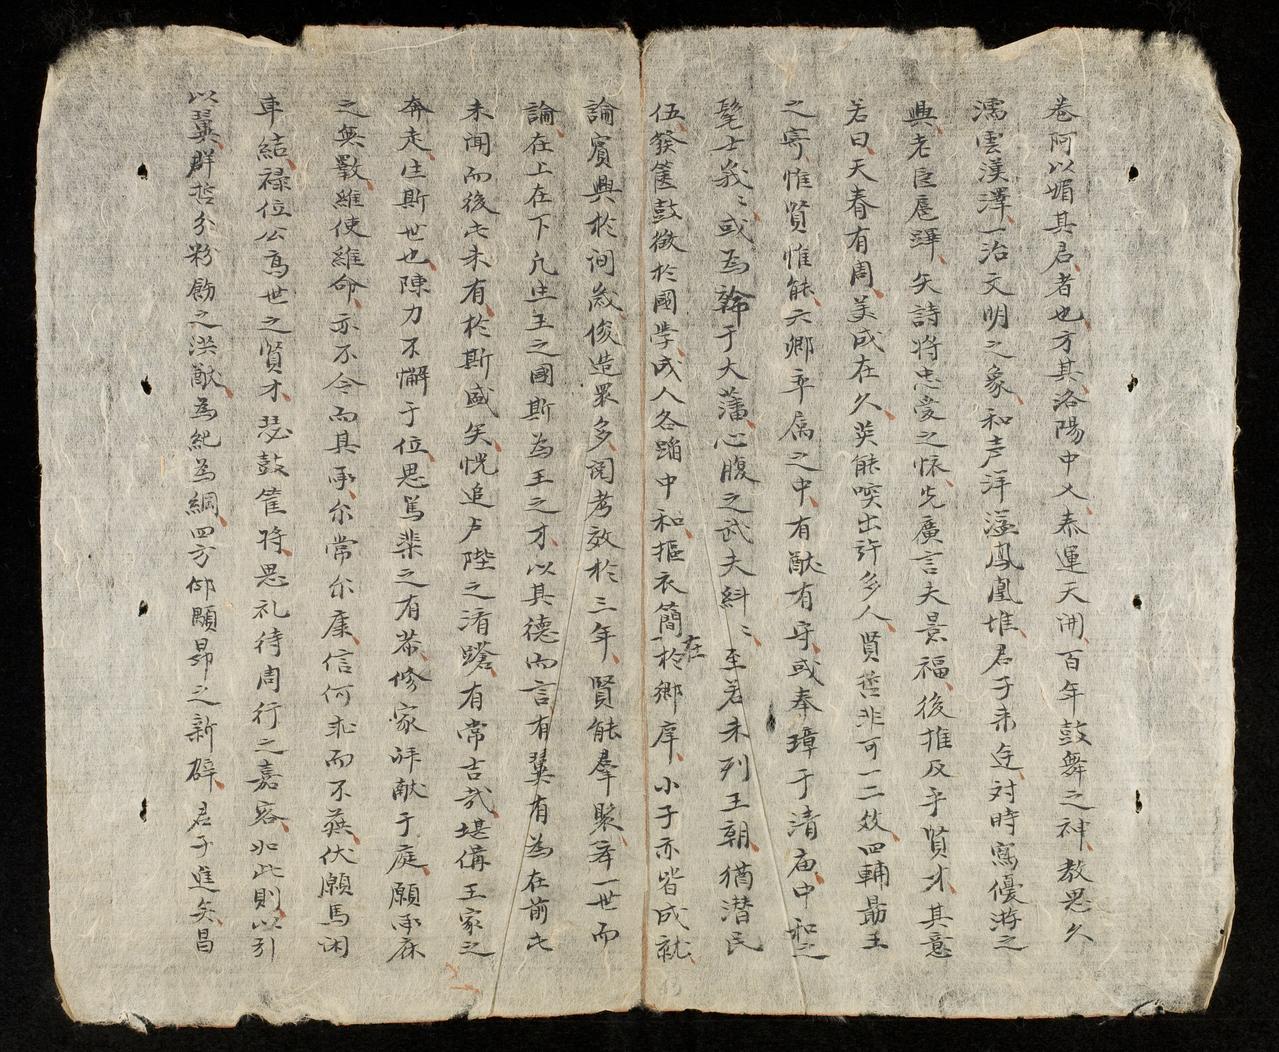 卷阿以媚其君者也方其洛陽中乂泰運天開百年鼓舞之神教思久
濡雲漢澤一治文明之象和声洋溢鳳凰堆君子来迕対時寫優游之
興老臣扈蹕矢詩将忠愛之懷先廣言夫景福後推及乎賢才其意
若曰天眷有周美成在久英能啖出許多人賢哲非可一二效四輔勗王
之寄惟賢惟能六卿率属之中有猷有守或奉璋于清庙中和之
髦士峩〻或為翰于大藩心腹之武夫糾〻至若未列王朝猶潜民
伍簇簋鼓徵於國学成人各蹈中和摳衣簡在於鄉庠小子亦皆成就
論賓興於洞歲俊造眾多閲考效於三年賢能羣聚举一世而
論在上在下凢生王之國斯為王之才以其德而言有翼有為在前古
未聞而後古未有於斯盛矣恍追戶陛之濟蹌有常吉哉堪俻王家之
奔走生斯世也陳力不懈于位思篤棐之有恭修家拜献于庭願承庥
之無斁維使維命亦不令而其承尓常尓康信何求而不获伏願馬闲
車結禄位公高世之賢才瑟鼓筐将思礼待周行之嘉客如此則以引
以翼群哲分粉餙之洪猷為紀為綱四方仰顒昻之新辟君子進矣昌